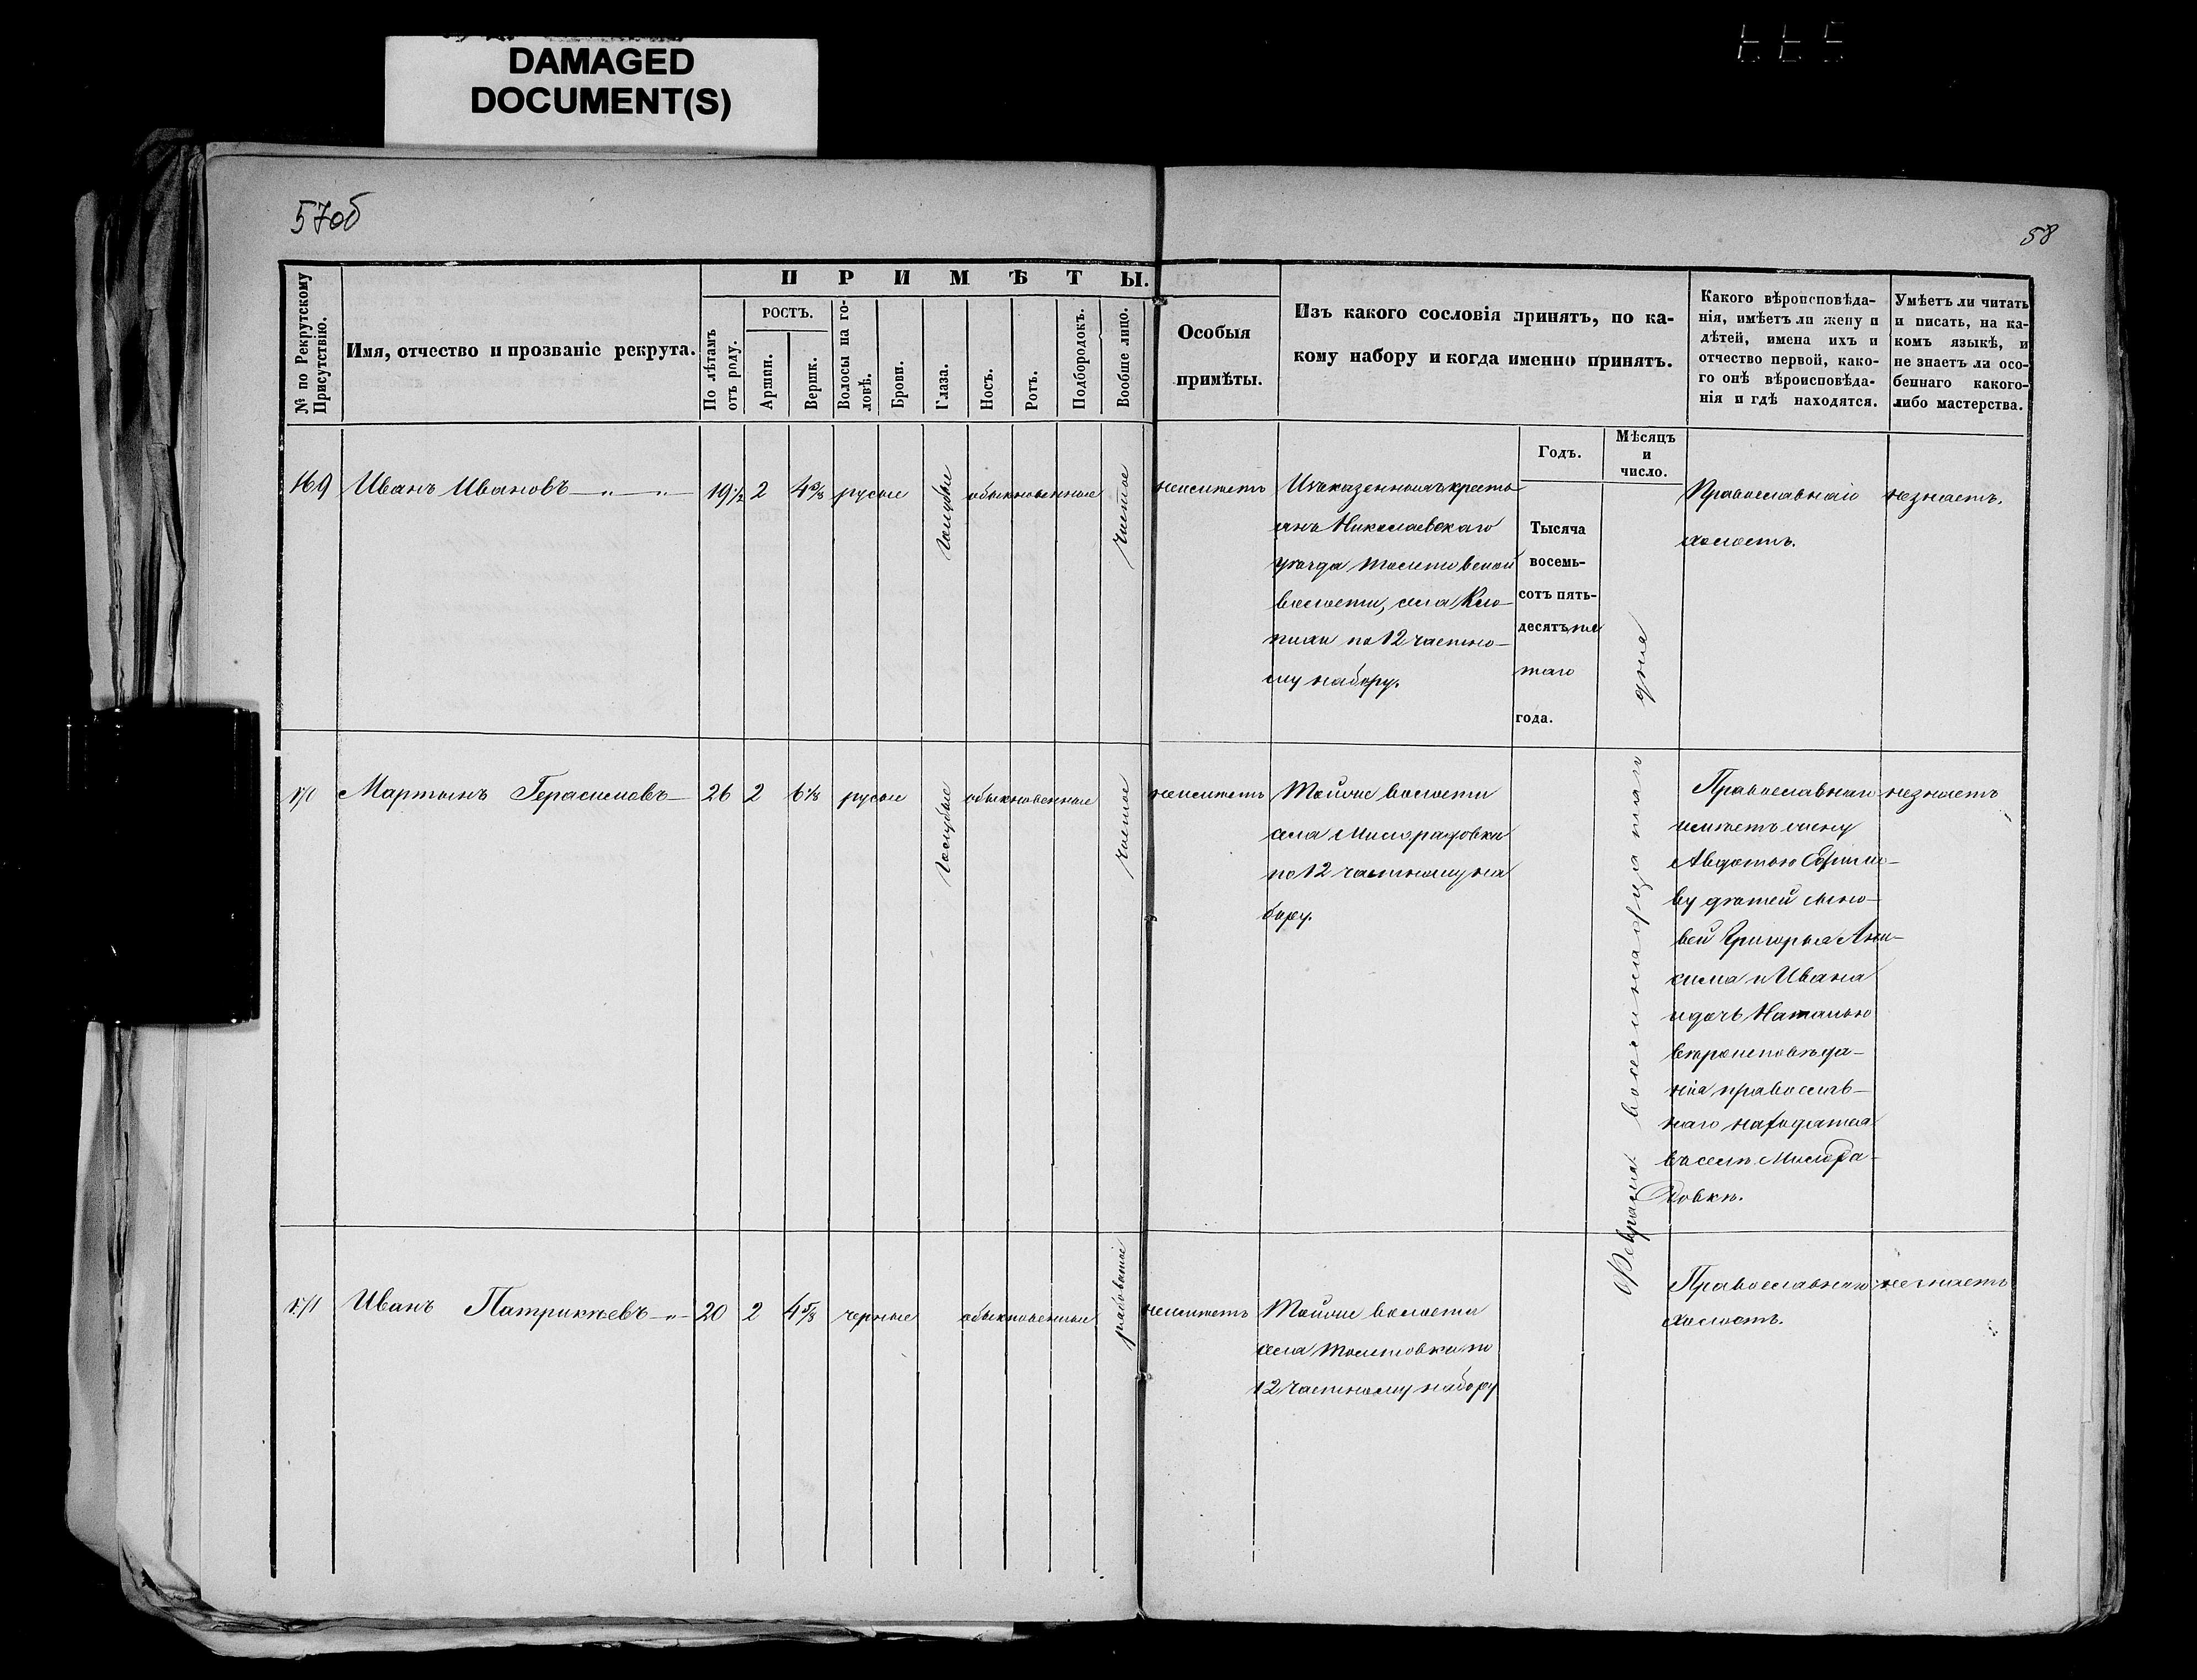 DAMAGED
DOCUMENT(S)
57об
58
№ по Рекрутскому Присутствію.
Имя, отчество и прозваніе рекрута.
ПРИМѢТЫ.
По лѣтамъ отъ роду.
РОСТЪ.
Аршин.
Вершк.
Волосы на головѣ.
Брови.
Глаза.
Носъ.
Ротъ.
Подбородокъ.
Вообще лицо.
Особыя
примѣты.
Изъ какого сословія принятъ, по ка-
кому набору и когда именно принятъ.
Годъ.
Мѣсяцъ
и
число.
Какого вѣроисповѣда-
нія, имѣетъ ли жену и
дѣтей, имена ихъ и
отчество первой, како-
го онѣ вѣроисповѣда-
нія и гдѣ находятся.
Умѣетъ ли читать
и писать, на ка-
комъ языкѣ, и
не знаетъ ли осо-
беннаго какого-
либо мастерства.
169 Иванъ Ивановъ 19½ 2 4⅜ русые голубые обыкновенные чистое
неимѣетъ
Изъ казенныхъ кресть
янъ Николаевскаго
уѣзда Толстовской
волости, села Клю-
по 12 частно-
му набору.
Тысяча
восемь-
сотъ пять-
десятъ пя
таго
года.
Февраля восемнадцатаго дня
Православнаго
холостъ.
незнаетъ.
170 Мартынъ Герасимовъ 26 2 6⅛ русые голубые обыкновенные чистое
неимѣетъ
Тойже волости
села Милорадовки
по 12 частному на
бору.
Православнаго
имѣетъ жену
Авдотью Ефимо-
ву дѣтей сыно-
вей Григорья Ани-
сима и Ивана
и дочь Наталью
вѣроисповѣда-
нія православ-
наго находятся
въ селѣ Милора-
довкѣ.
незнаетъ
171 Иванъ Патрикѣевъ 20 2 4⅝ черные обыкновенные рябоватое
неимѣетъ
Тойже волости
села Толстовки по
12 частному набору
Православнаго
холостъ.
незнаетъ